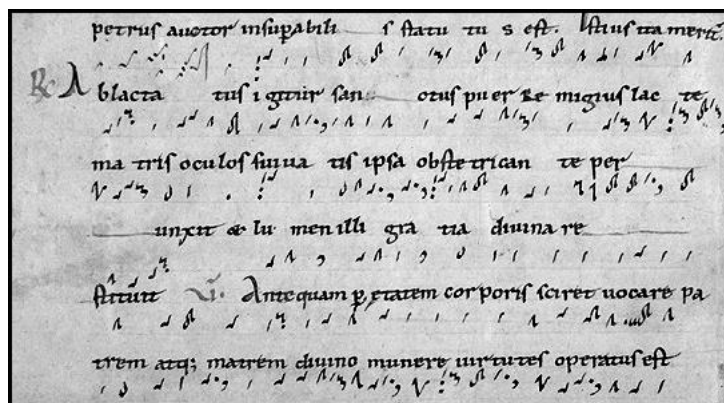 petrus auctor insuꝑabili s statu tu s est. Istius ita merit.
R A blacta tus i gitur san ctus puer Re migius lac te
ma tris oculos sui ua tis ipsa obstetrican te per
unxit & lu men illi gra tia diuina re
stituit V. Antequam ꝑ etatem corporis sciret uocare pa
trem atq; matrem diuino munere uirtutes operatus est